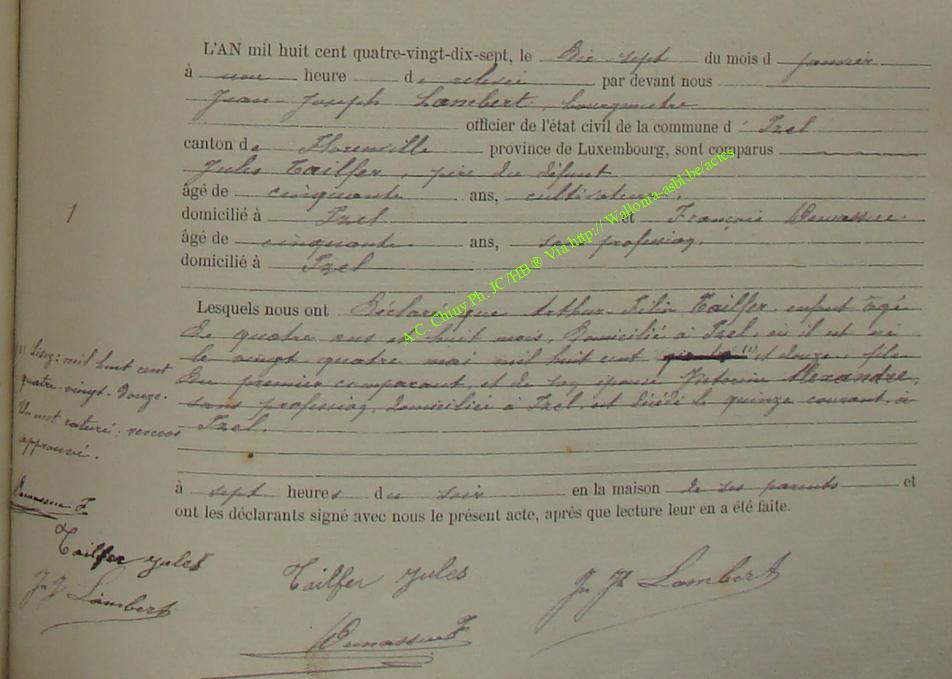 L'AN mil huit cent quatre-vingt-dix-sept, le dix sept du mois d janvier
à une heure de relevée par devant nous
Jean-Joseph Lambert, bourgmestre
officier de l'état civil de la commune d' Izel
canton de Florenville province de Luxembourg, sont comparus
Jules Tailfer, père du défunt
âgé de cinquante ans, cultivateur,
domicilié à Izel et François
âgé de cinquante ans, sans profession,
domicilié à Izel
1
Lesquels nous ont déclaré que Arthur-Félix Tailfer, enfant âgé
de quatre ans et huit mois, domicilié à Izel, où il est né
le vingt quatre mai mil huit cent (1) et douze, fils
du premier comparant, et de son épouse Victorine Alexandre,
sans profession, domiciliée à Izel, est décédé le quinze courant, à
Izel.
(1) Lisez: mil huit cent
quatre-vingt-douze.
Un mot raturé; renvoi
approuvé.
à sept heures du soir en la maison de ses parents et
ont les déclarants signé avec nous le présent acte, après que lecture leur en a été faite.
Tailfer Jules
Jn Jh Lambert
Tailfer Jules
Jn Jh Lambert
A.C. Chiny Ph. JC /HB ® Via http:// Wallonia-asbl.be/actes